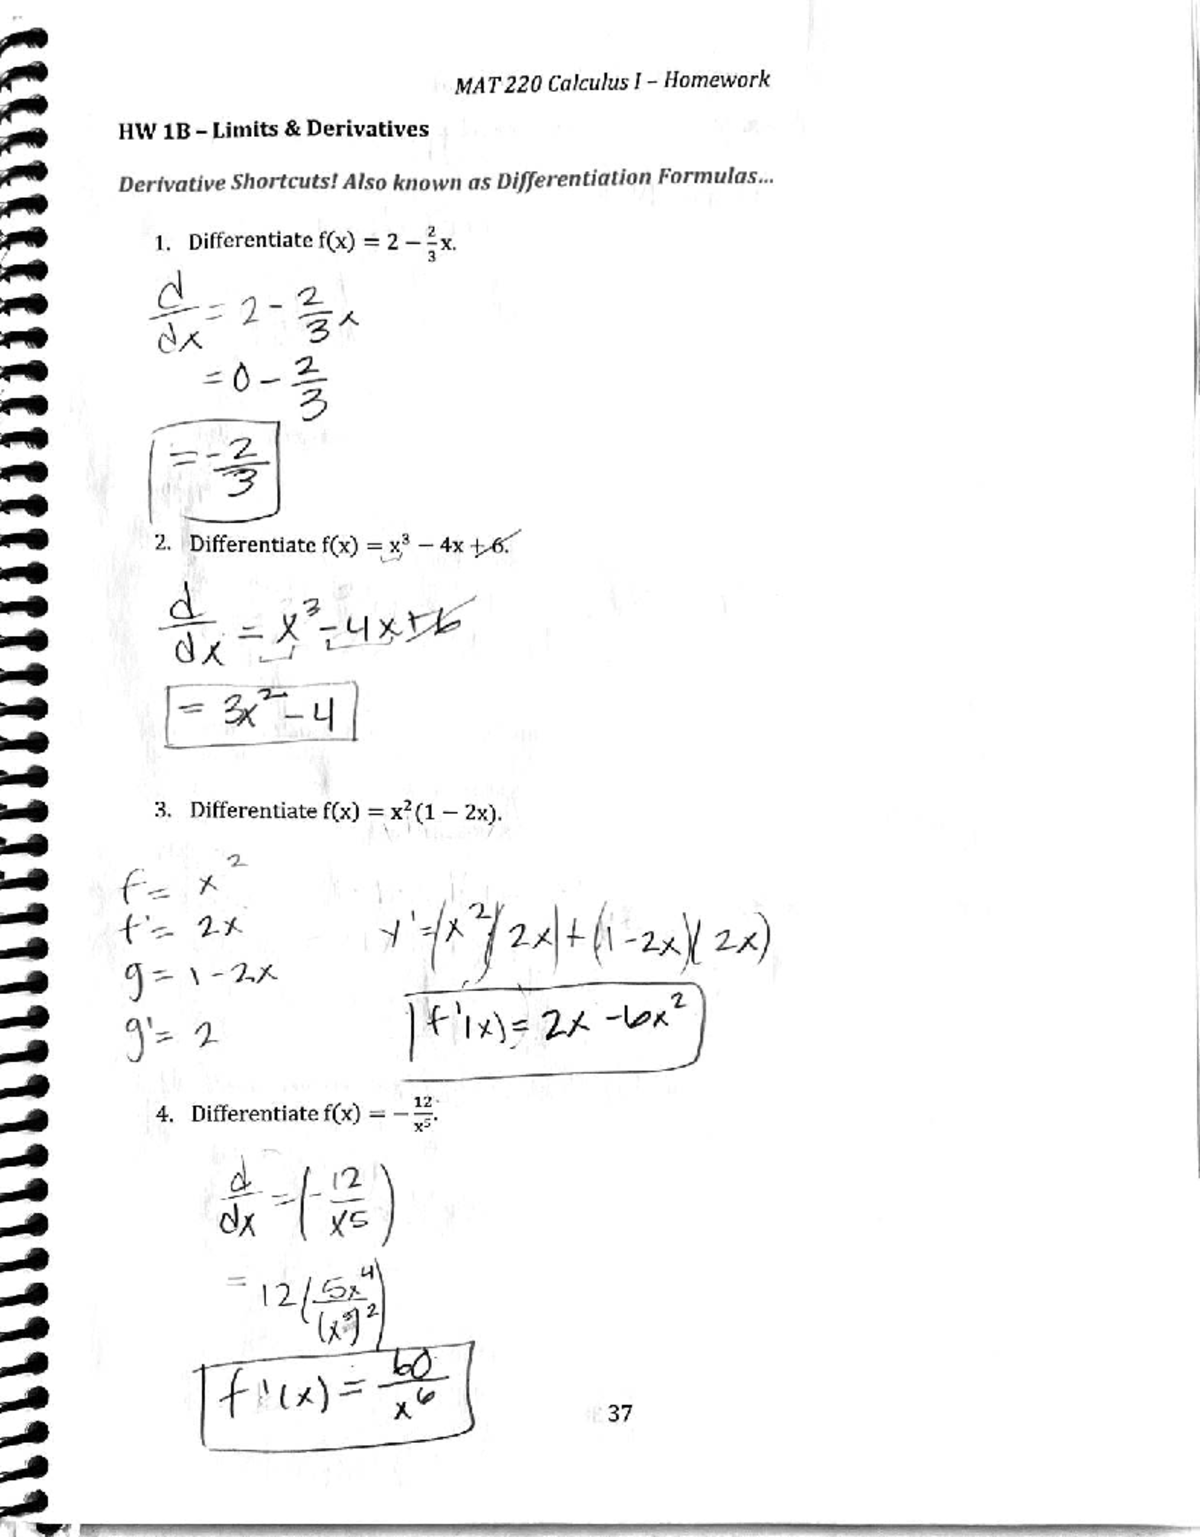 MAT 220 Calculus I – Homework
HW 1B – Limits & Derivatives
Derivative Shortcuts! Also known as Differentiation Formulas...
1. Differentiate f(x) = 2 − 2/3 x.
d/dx = 2 - 2/3 x
= 0 - 2/3
= -2/3
2. Differentiate f(x) = x³ − 4x + 6.
d/dx = x³ - 4x + 6
= 3x² - 4
3. Differentiate f(x) = x²(1 − 2x).
f = x²
f' = 2x
g = 1 - 2x
g' = 2
y' = (x²)(2x) + (1-2x)(2x)
f'(x) = 2x - 6x²
4. Differentiate f(x) = − 12/x⁵.
d/dx = (- 12/x5)
= 12 (5x⁴/(x⁵)²)
f'(x) = 60/x⁶
37